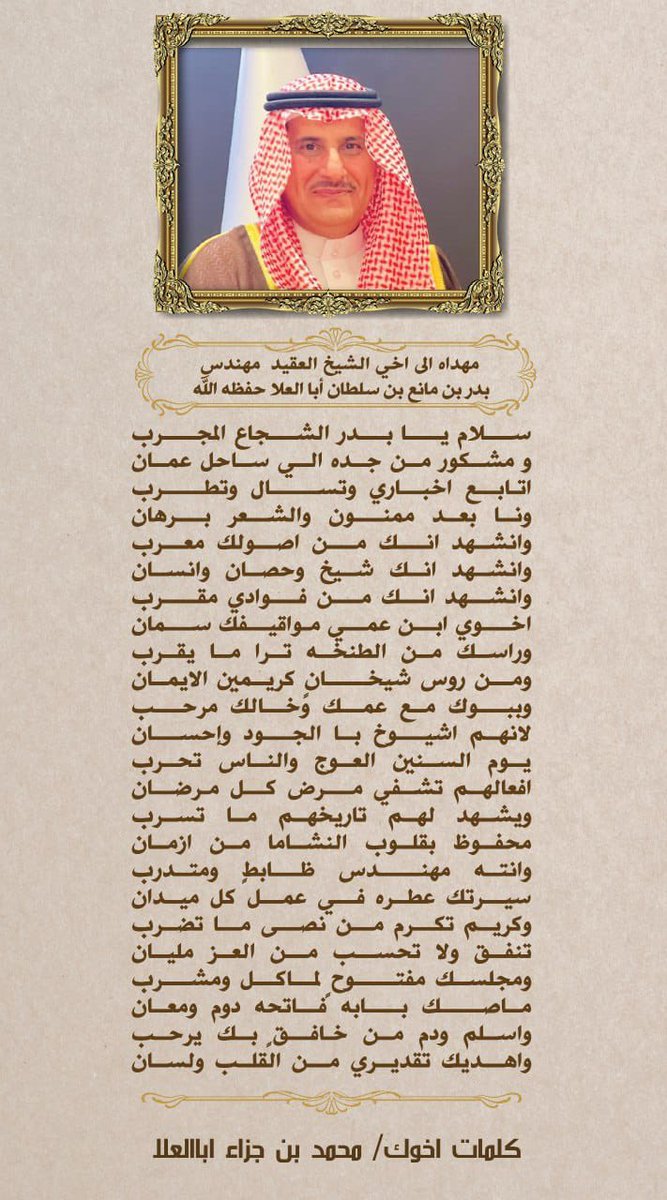 مهداه الى اخي الشيخ العقيد مهندس
بدر بن مانع بن سلطان أبا العلا حفظه الله
سلام يا بدر الشجاع المجرب
و مشكور من جده الي ساحل عمان
اتابع اخباري وتسال وتطرب
ونا بعد ممنون والشعر برهان
وانشهد انك من اصولك معرب
وانشهد انك شيخ وحصان وانسان
وانشهد انك من فوادي مقرب
اخوي ابن عمي مواقيفك سمان
وراسك من الطنخه ترا ما يقرب
ومن روس شيخانٍ كريمين الايمان
وببوك مع عمك وخالك مرحب
لانهم اشيوخٍ با الجود وإحسان
يوم السنين العوج والناس تحرب
افعالهم تشفي مرض كل مرضان
ويشهد لهم تاريخهم ما تسرب
محفوظ بقلوب النشاما من ازمان
وانته مهندس ظابطٍ ومتدرب
سيرتك عطره في عمل كل ميدان
وكريم تكرم من نصى ما تضرب
تنفق ولا تحسب من العز مليان
ومجلسك مفتوحٍ لماكل ومشرب
ماصك بابه فاتحه دوم ومعان
واسلم ودم من خافقٍ بك يرحب
واهديك تقديري من القلب ولسان
كلمات اخوك/ محمد بن جزاء اباالعلا